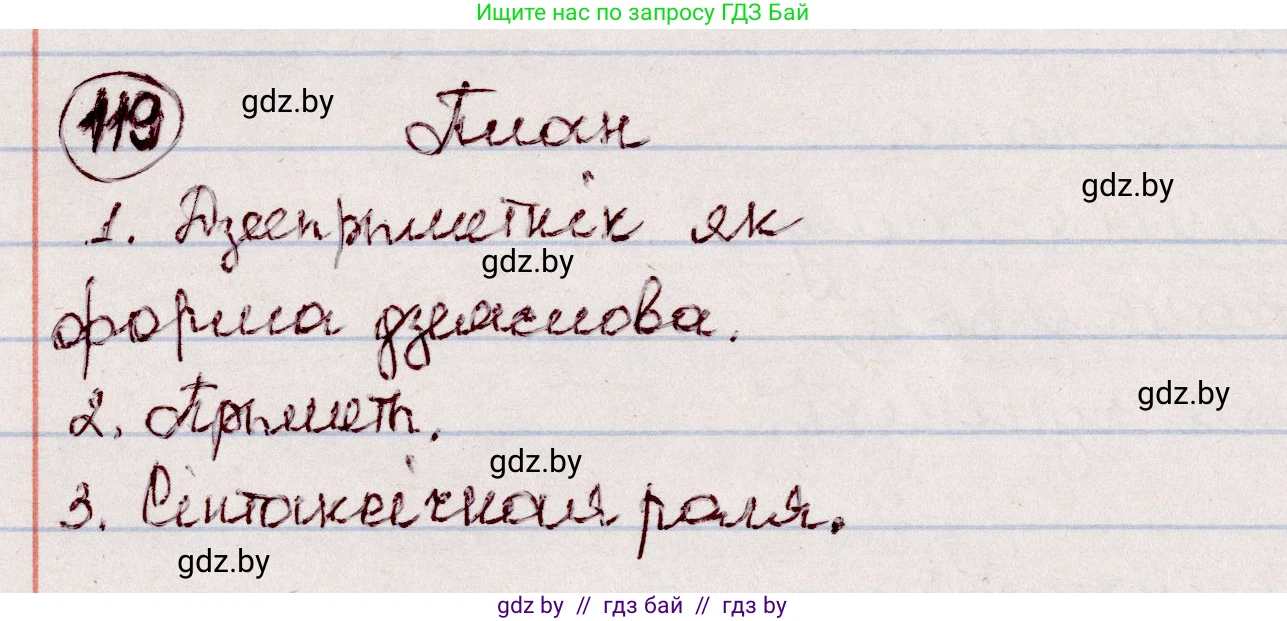 Ищите нас по запросу ГДЗ Бай
119 gdz.by План
gdz.by
1. Дзеепрыметнік як
gdz.by
форма дзеяслова.
2. Прыметы.
gdz.by
gdz.by
3. Сінтаксічная роля.
gdz.by
gdz by // гдз бай // гдз by